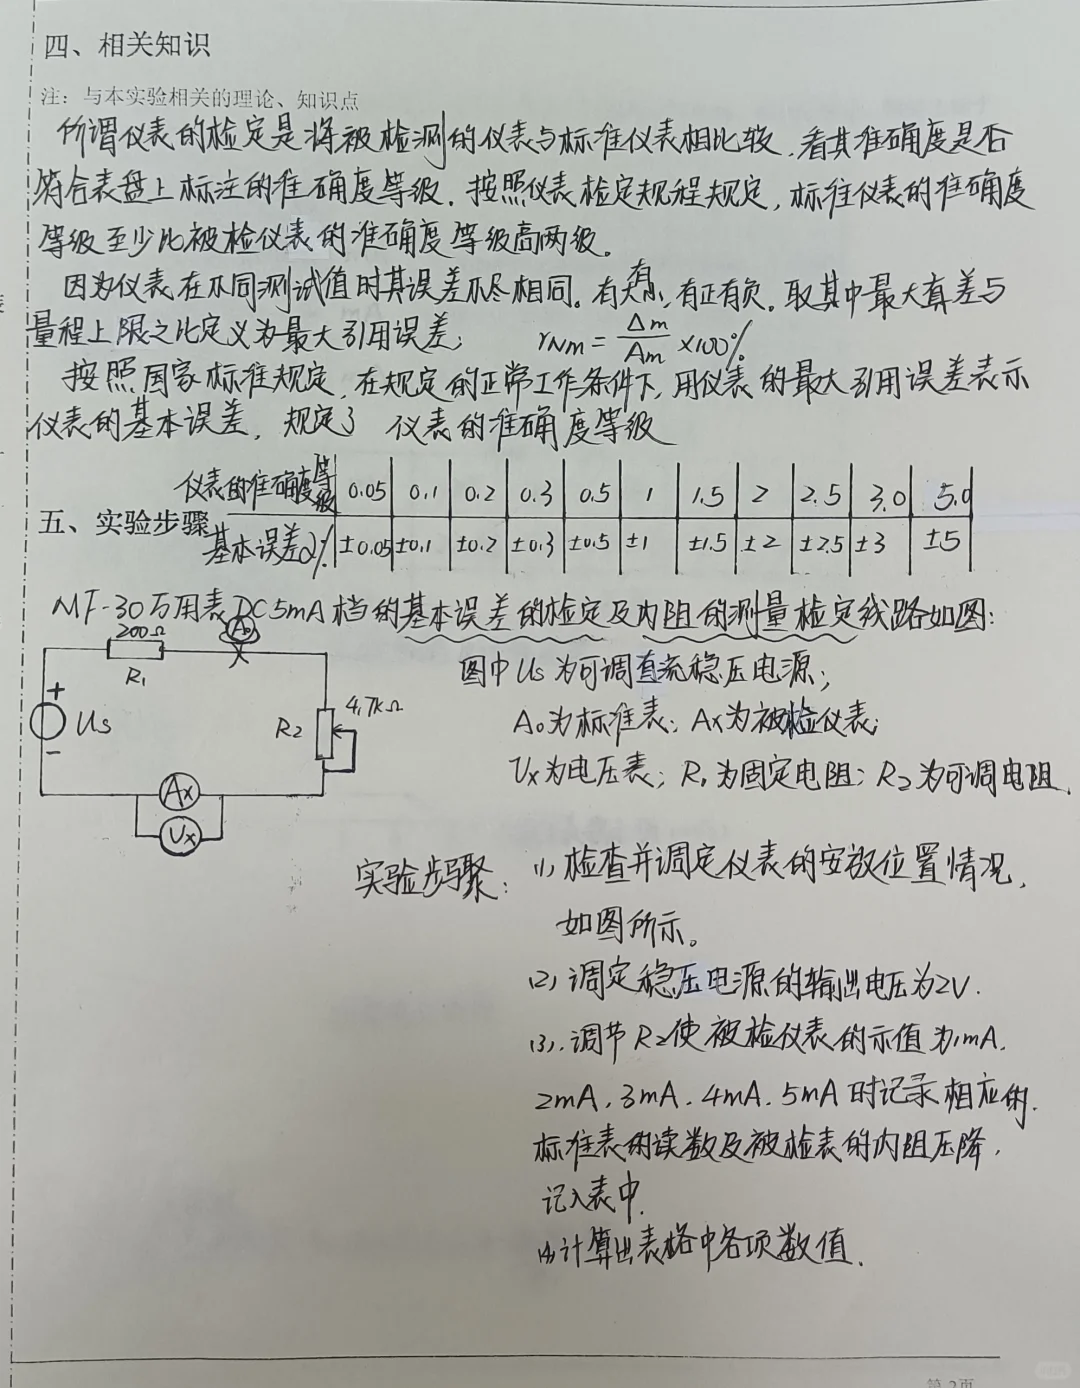 四、相关知识
注：与本实验相关的理论、知识点
所谓仪表的检定是将被检测的仪表与标准仪表相比较，看其准确度是否
符合表盘上标注的准确度等级。按照仪表检定规程规定，标准仪表的准确度
等级至少比被检仪表的准确度等级高两级。
因为仪表在不同测试值时其误差不尽相同。有大有小，有正有负。取其中最大真差与
量程上限之比定义为最大引用误差； γNm = Δm/Am ×100%
按照国家标准规定，在规定的正常工作条件下，用仪表的最大引用误差表示
仪表的基本误差，规定了 仪表的准确度等级
仪表的准确度等级 0.05 0.1 0.2 0.3 0.5 1 1.5 2 2.5 3.0 5.0
五、实验步骤
基本误差% ±0.05 ±0.1 ±0.2 ±0.3 ±0.5 ±1 ±1.5 ±2 ±2.5 ±3 ±5
MF-30万用表DC5mA档的基本误差的检定及内阻的测量检定线路如图：
200Ω
A₀
R₁
+
Us
-
R₂
4.7kΩ
Ax
Vx
图中Us为可调直流稳压电源；
A₀为标准表；Ax为被检仪表；
Vx为电压表；R₁为固定电阻；R₂为可调电阻.
实验步骤：
(1)检查并调定仪表的安放位置情况，
如图所示。
(2)调定稳压电源的输出电压为2V.
(3).调节R₂使被检仪表的示值为1mA.
2mA.3mA.4mA.5mA时记录相应的.
标准表的读数及被检表的内阻压降，
记入表中.
(4)计算出表格中各项数值.
第2页